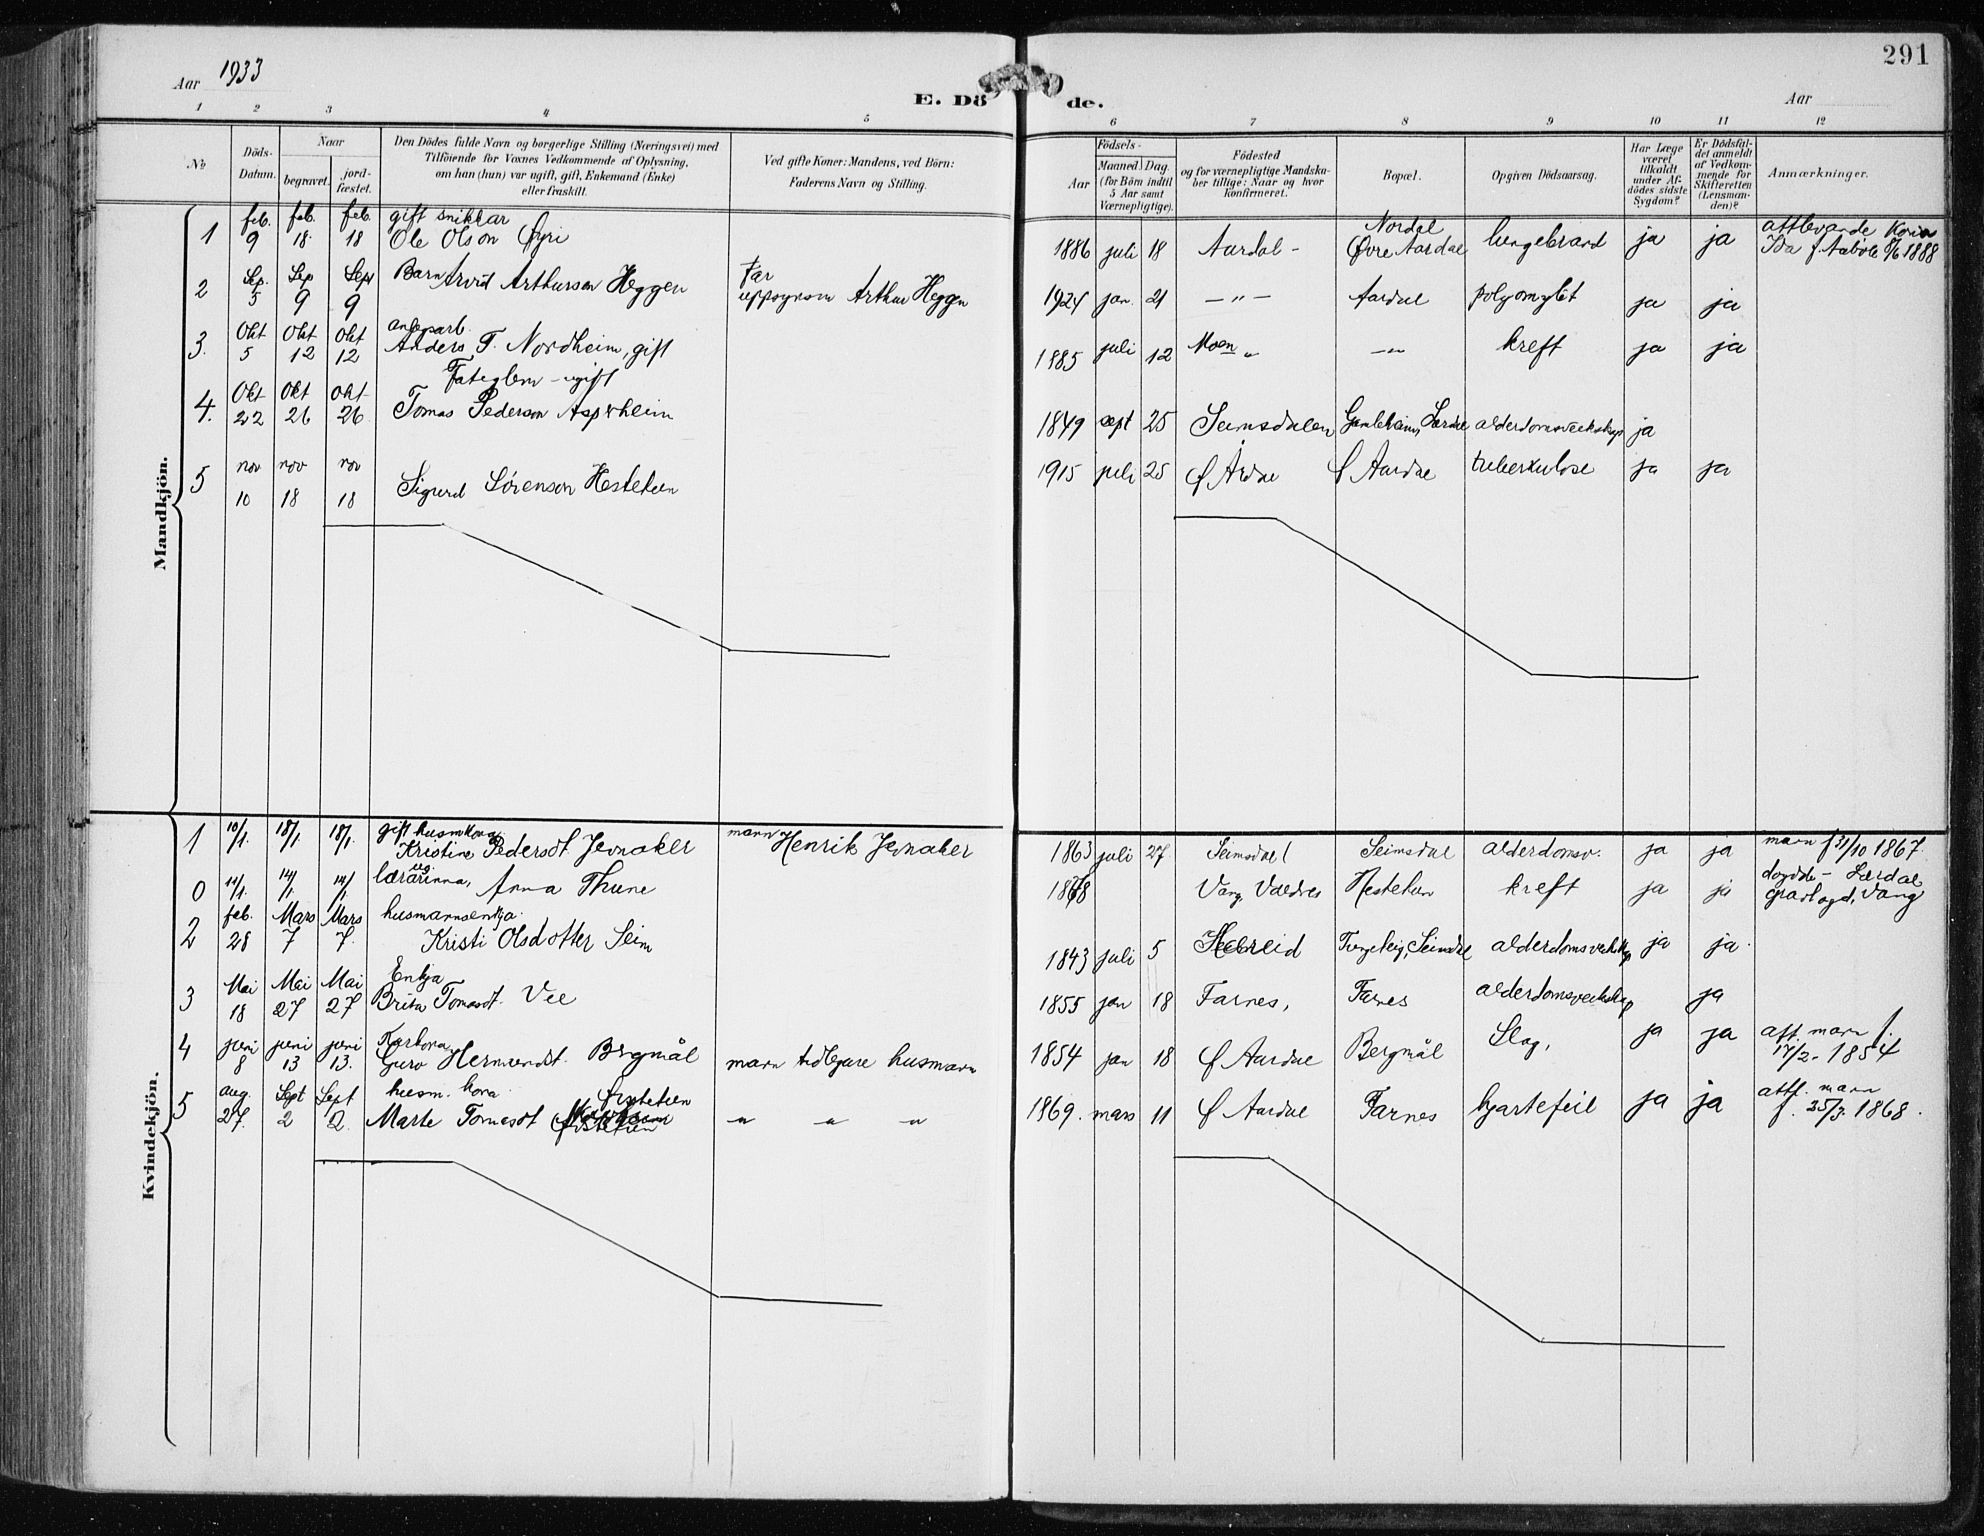 291
Aar 1933
E. Dö de.
Aar
1 2 3 4 5 6 7 8 9 10 11 12
No
Döds-Datum.
Naar
begravet.
jord-fæstet.
Den Dödes fulde Navn og borgerlige Stilling (Næringsvei) med
Tilföiende for Voxnes Vedkommende af Oplysning,
om han (hun) var ugift, gift, Enkemand (Enke)
eller fraskilt.
Ved gifte Koner: Mandens, ved Börn:
Faderens Navn og Stilling.
Födsels-
Aar
Maaned. Dag.
(for Börn indtil
5 Aar samt
Værnepligtige).
Födested
og for værnepligtige Mandska-
ber tillige: Naar og hvor
konfirmeret.
Bopæl.
Opgiven Dödsaarsag.
Har Læge
været
tilkaldt
under Af-
dödes sidste
Sygdom?
Er Dödsfal-
det anmeldt
af Vedkom-
mende for
Skifteretten
(Lensman-
den)?
Anmærkninger.
Mandkjön.
feb. feb. feb. gift snikkar Nordal attlevande Kona
1 9 18 18 Ole Olson Øyri 1886 juli 18 Aardal - Øvre Aardal lungebrand ja ja 1888
Sep. Sep Sept Barn Arvid Arthurson Heggen Far
2 5 9 9 uppsynsm Arthur Heggen 1924 jan. 21 — " — Aardal polyomylit ja ja
Okt Okt Okt
3. 5 12 12 Anders T. Nordheim, gift 1885 juli 12 Moen " — " — kreft ja ja
Okt Okt Okt - ugift
4. 22 26 26 Tomas Pederson Asperheim 1849 sept 25 Seimsdalen Gamleheim, Lærdal alderdomsveikskap ja
nov nov nov
5 10 18 18 Sigurd Sørenson Hestetun 1915 juli 25 Ø Årdal Ø Aardal tuberkulose ja ja
Kvindekjön.
gift husmkona
1 10/1. 18/1. 18/1. Kristine Pedersdt. Jevnaker mann Henrik Jevnaker 1863 juli 27 Seimsdal Seimsdal alderdomsv. ja ja mann f 31/10 1867.
lærarinna, ug
0 11/1. 14/1. 14/1. Anna Thune 1878 Vang, Valdres Hestetun kreft ja ja døydde - Lærdal gravlagd, Vang
feb. Mars Mars husmannsenkja.
2 28 7 7. Kristi Olsdotter Seim 1843 juli 5 Hebreid Seimsdal alderdomsveikskap ja ja.
Mai Mai Mai Enkja
3 18 27 27 Brita Tomasdt. Vee 1855 jan 18 Farnes, Farnes alderdomsveikskap ja
juni juni juni
4 8 13 13. Guro Hermundsdt. Bergmål mann tidlegare husmann 1854 jan 18 Ø Aardal Bergmål Slag, ja ja att. mann f. 17/2 - 1854
aug. Sept Sept husm. kona
5 27. 2 2. Marte Tomasdt Øvstetun " " " 1869. mars 11 Ø Aardal Farnes hjartefeil ja ja attl. mann f. 25/3. 1868.